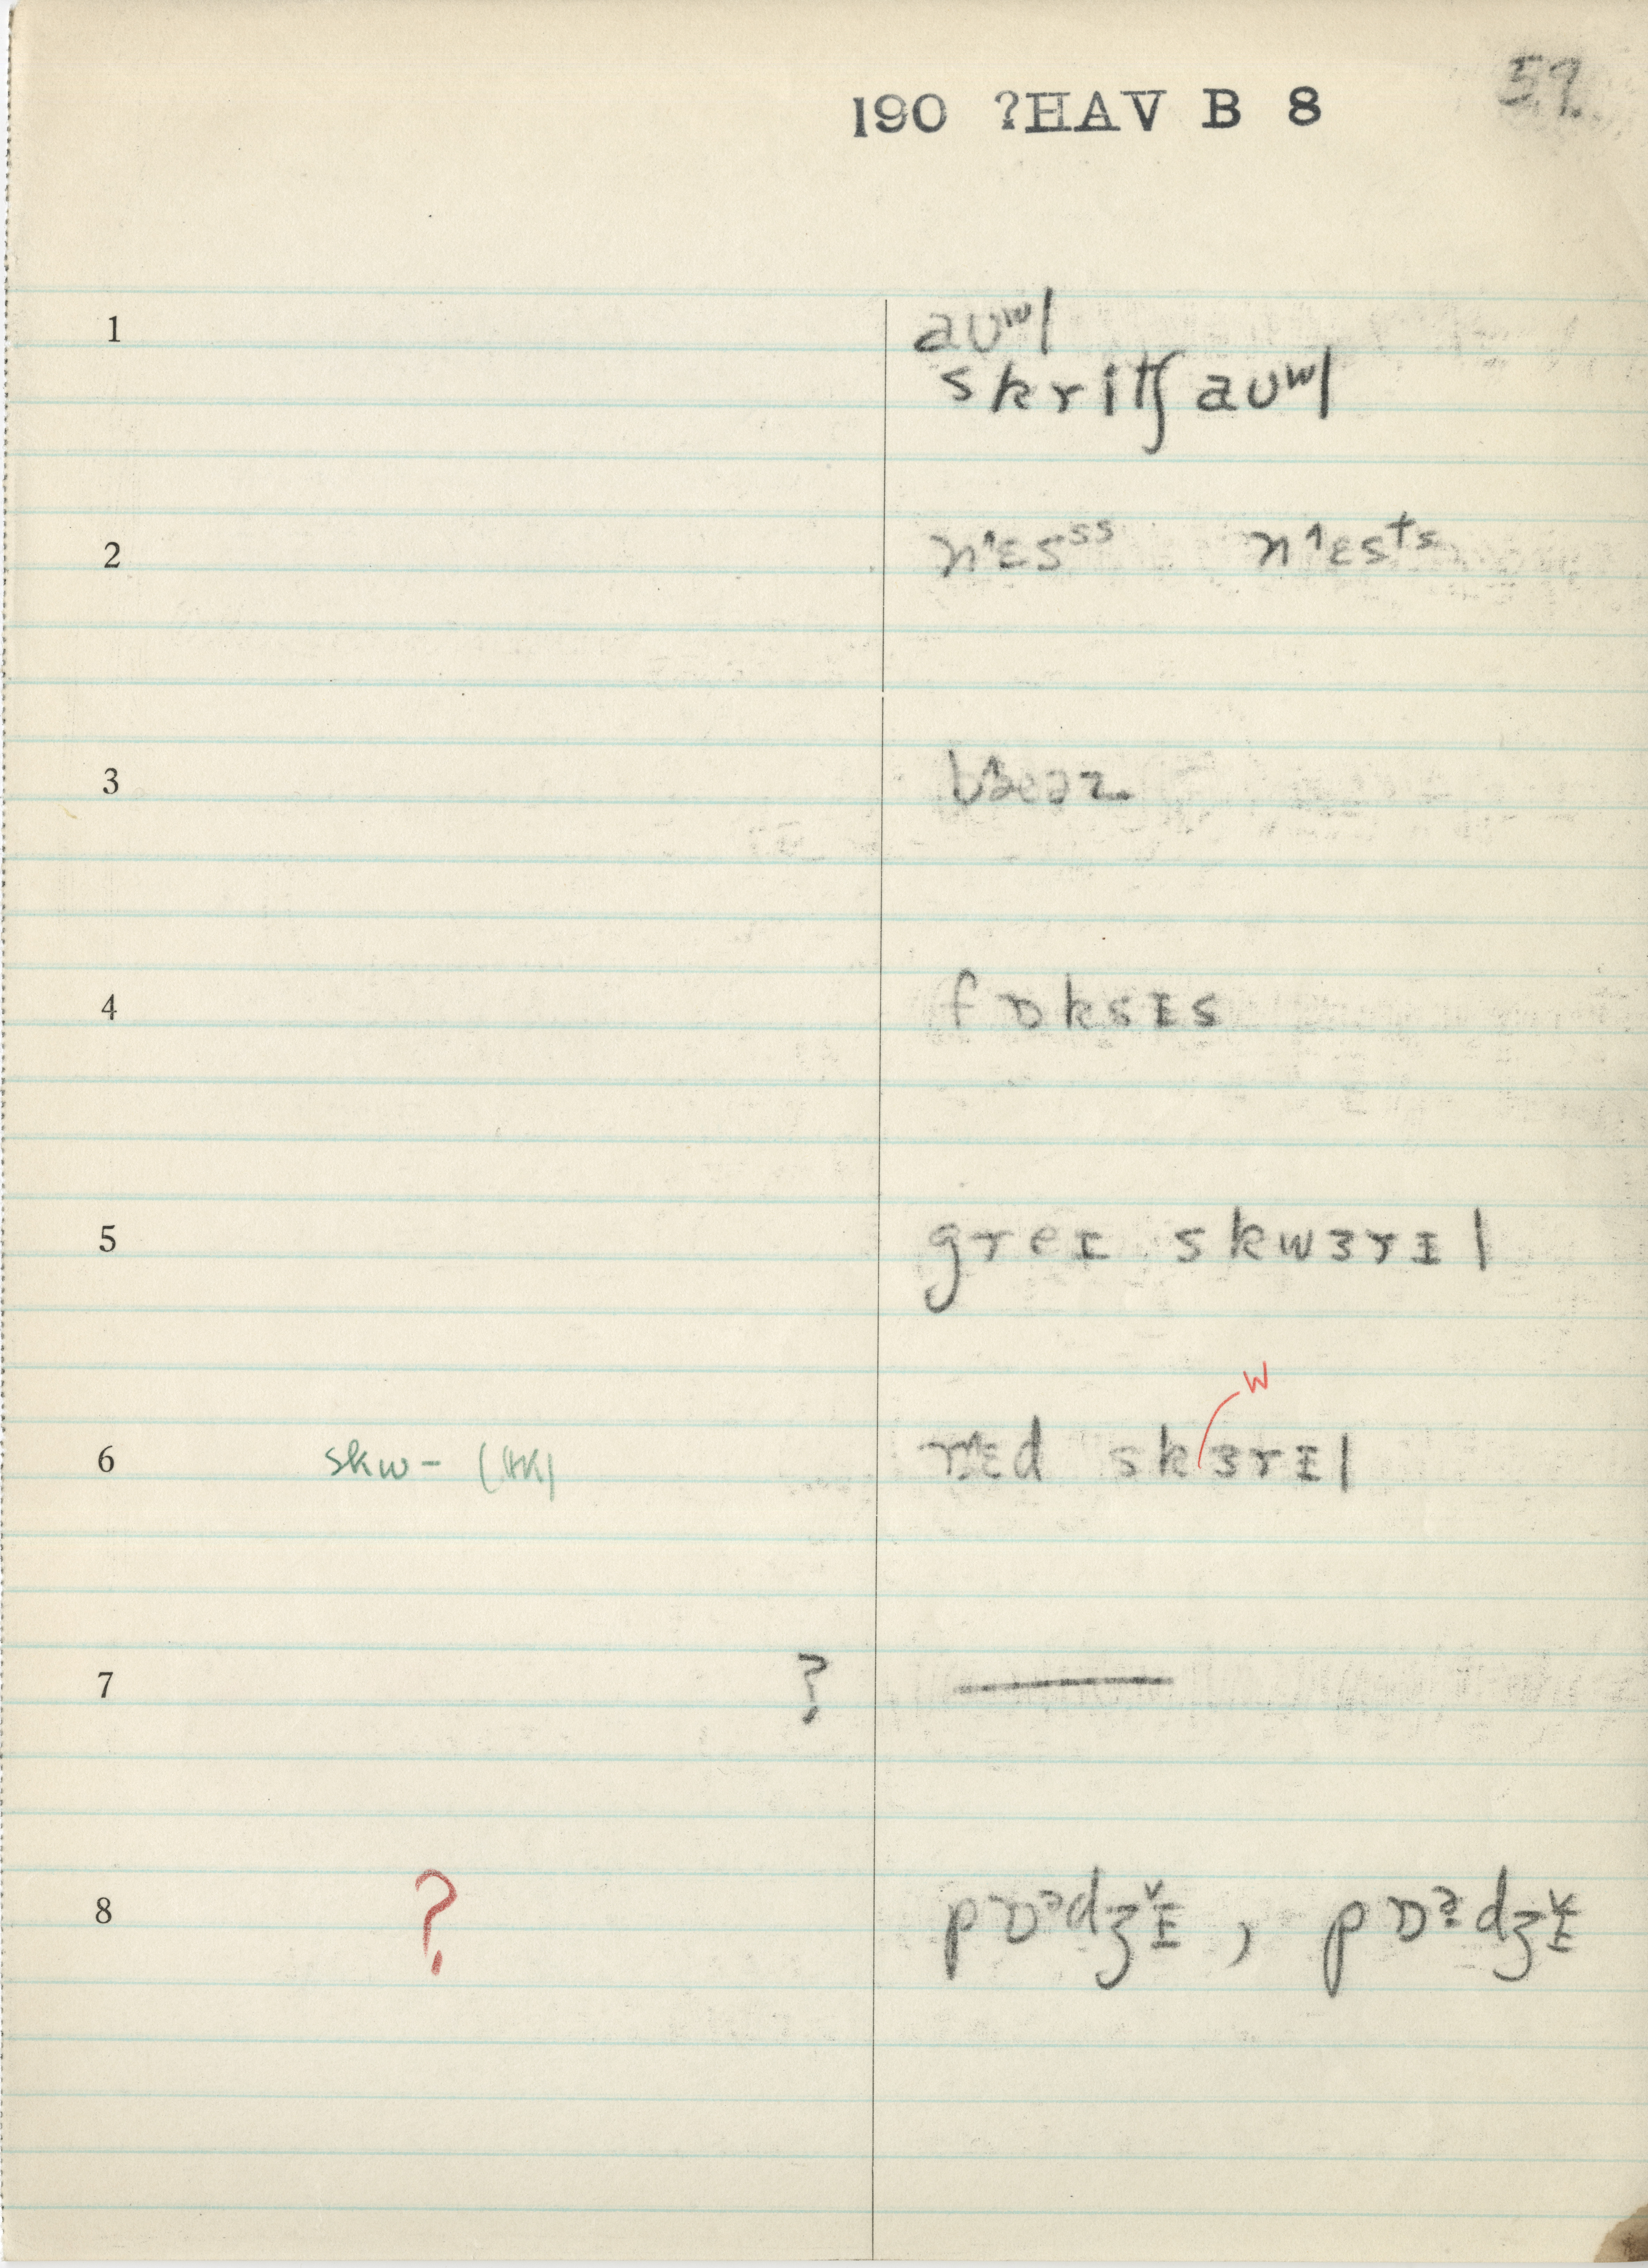 59.
190 ?HAV B 8
1 aʊʷl
skritʃ aʊʷl
2 n˄ɛsˢˢ n˄ɛsᵗˢ
3
4 fɒksɪs
5 greɪ skwɜrɪl
w
6 skw- r˄ɛd skɜrɪl
7 ? —
8 ? pɒˀdʒɪ˅ , pɒˀdʒɪ˅